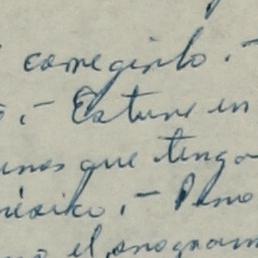 corregirlo. -
. - Estuve en
unos que tengo
México. - Pero
el programa